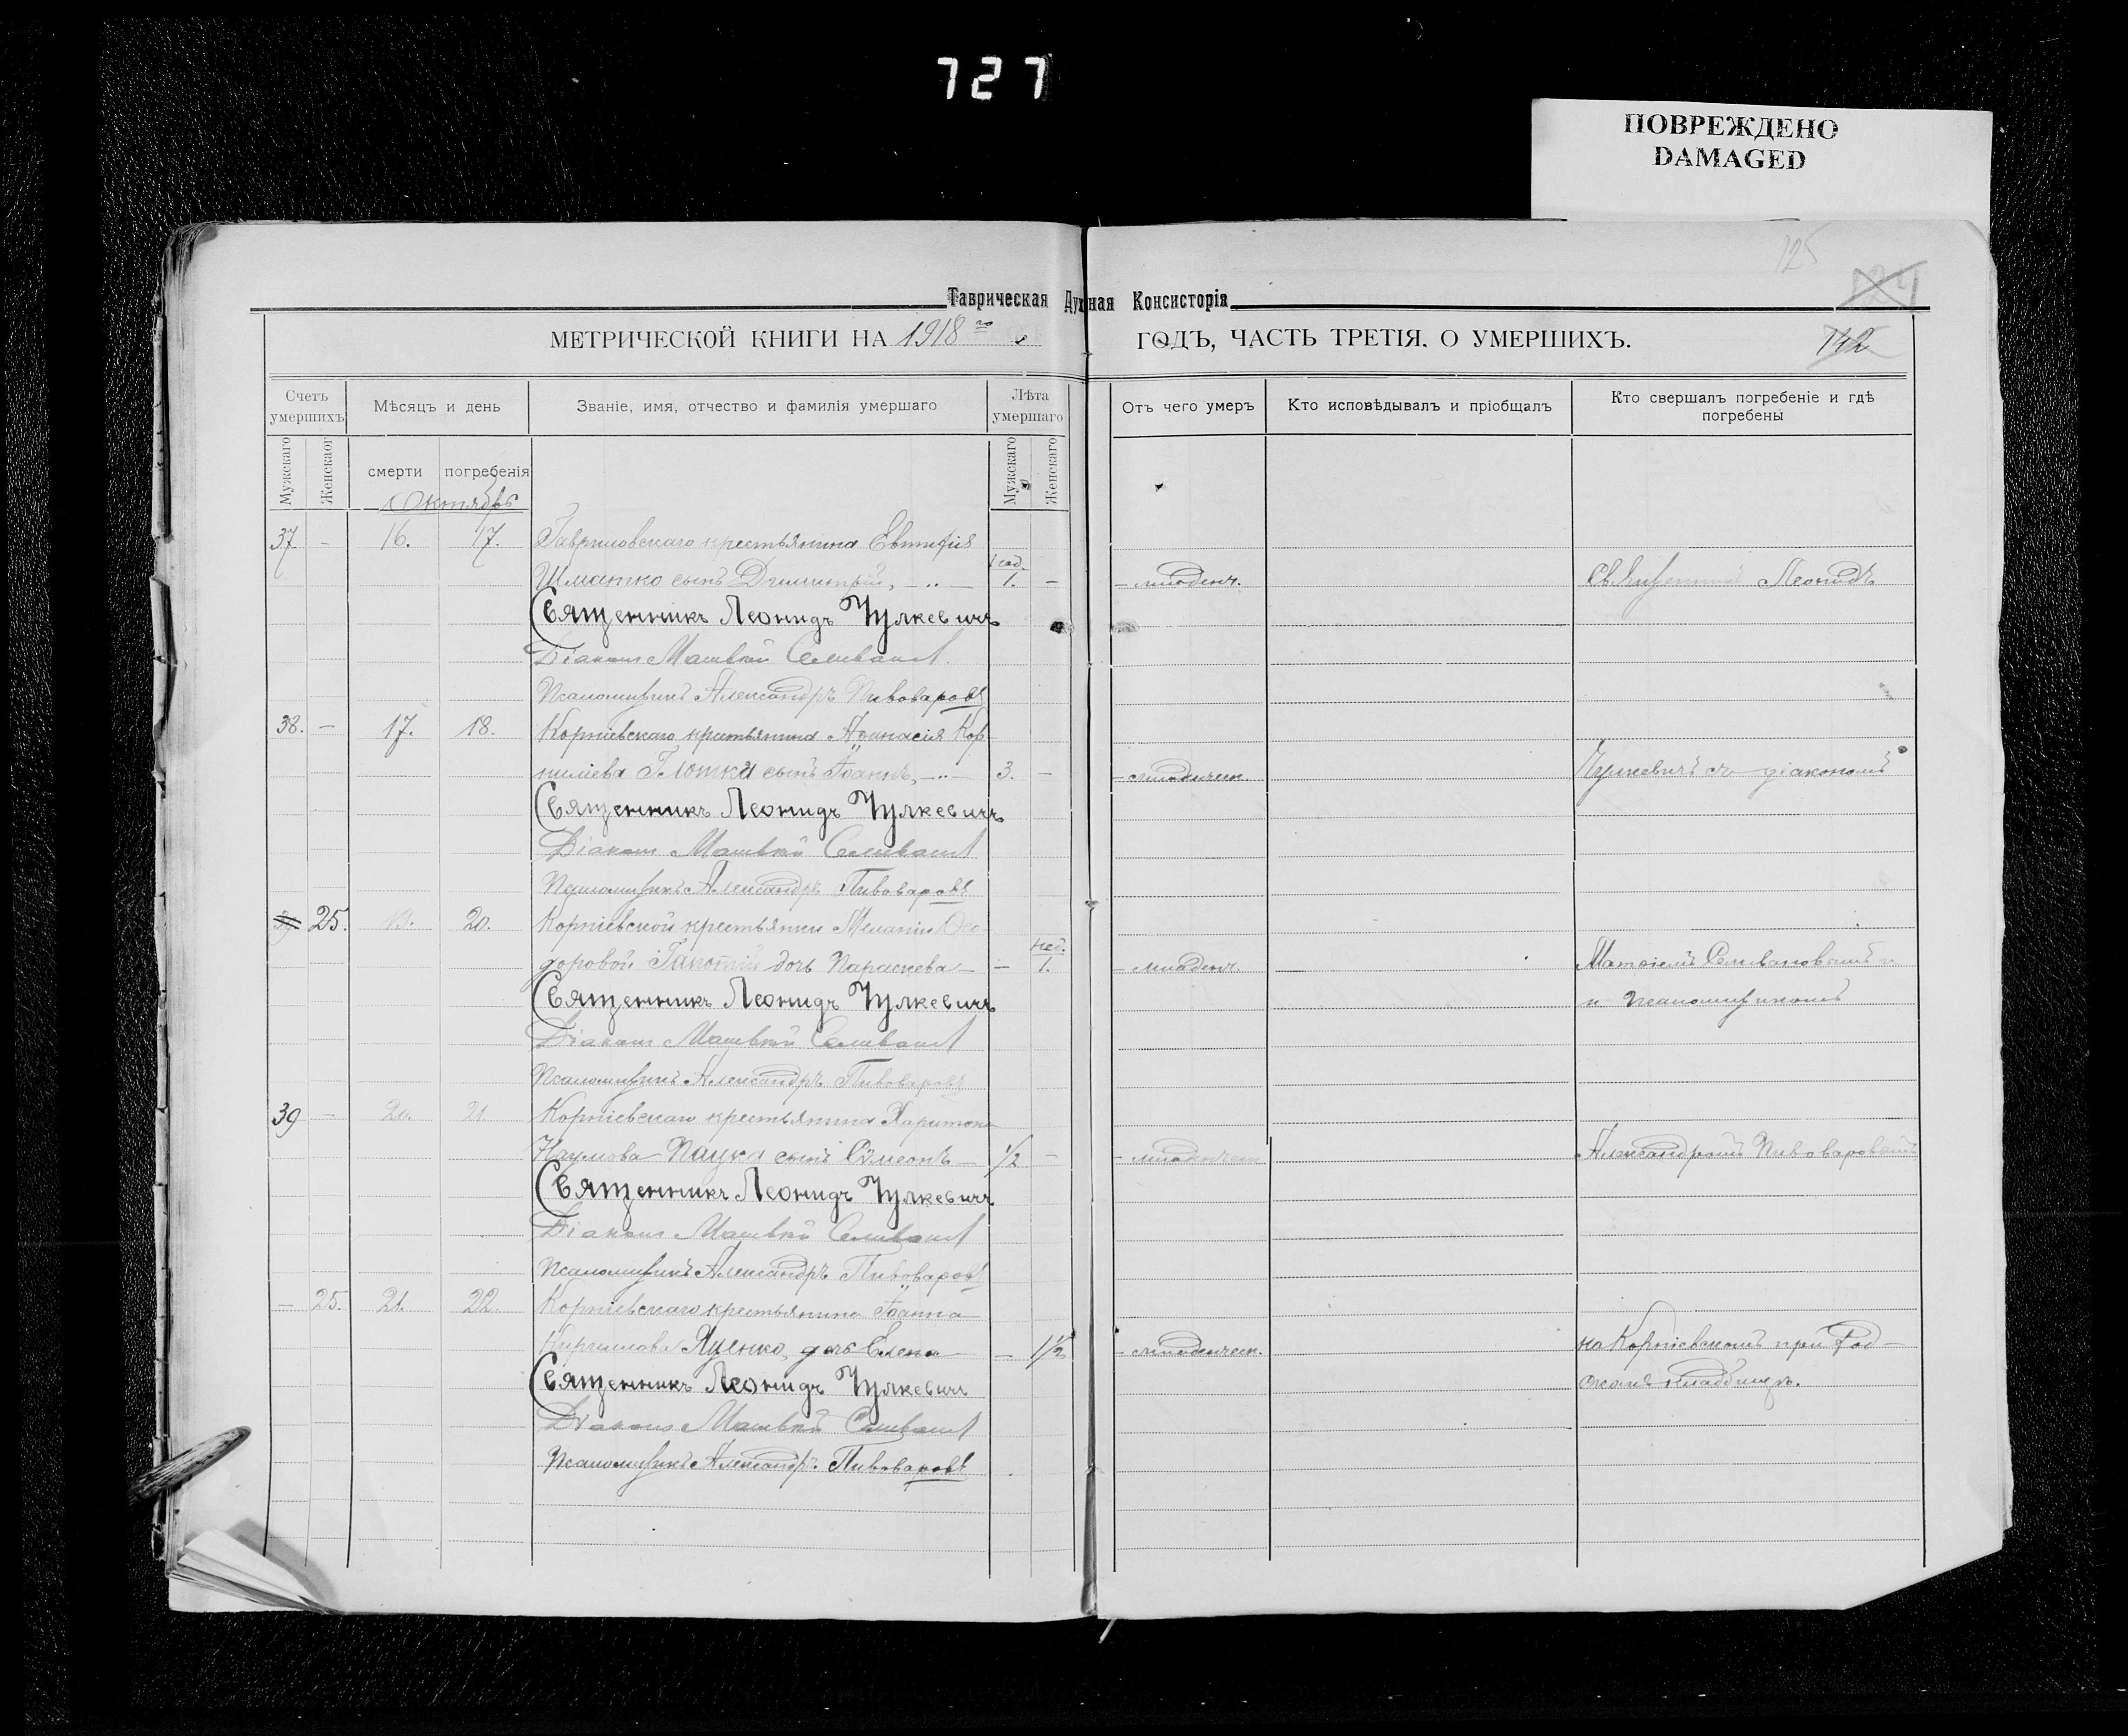 727
ПОВРЕЖДЕНО
DAMAGED
125
Таврическая Духная Консисторія
МЕТРИЧЕСКОЙ КНИГИ НА 1918 го ГОДЪ, ЧАСТЬ ТРЕТІЯ, О УМЕРШИХЪ.
142
Счетъ умершихъ
Мѣсяцъ и день
Званіе, имя, отчество и фамилія умершаго
Лѣта умершаго
Отъ чего умеръ
Кто исповѣдывалъ и пріобщалъ
Кто свершалъ погребеніе и гдѣ погребены
Мужскаго
Женскаог
смерти
погребенія
Мужскаго
Женскаго
Октябрь
37. – 16. 17. Гавриловскаго крестьянина Евтифія
Шматко сынъ Димитрій, – нед. 1. – – младенч. Священникъ Леонидъ
Священникъ Леонидъ Чулкевичъ
Діаконъ Матвѣй
Псаломщикъ Александръ Пивоваровъ
38. – 17. 18. Корніевскаго крестьянина Аѳанасія Кор
ниліева Глотка сынъ Іоаннъ, – 3. – – младенческ. Чулкевичъ съ діакономъ
Священникъ Леонидъ Чулкевичъ
Діаконъ Матвѣй
Псаломщикъ Александръ Пивоваровъ
25. 19. 20. Корніевской крестьянки Меланіи Ѳео
доровой дочь Параскева – – нед. 1. – младенч. Матвіемъ Селивановымъ и
Священникъ Леонидъ Чулкевичъ и псаломщикомъ
Діаконъ Матвѣй
Псаломщикъ Александръ Пивоваровъ
39 – 20. 21. Корніевскаго крестьянина Харитона
Наумова Паука сынъ Сѵмеонъ – 1/2 – – младенческ Александромъ Пивоваровымъ
Священникъ Леонидъ Чулкевичъ
Діаконъ Матвѣй
Псаломщикъ Александръ Пивоваровъ
– 25. 21. 22. Корніевскаго крестьянина Іоанна
Кириллова Яценко, дочь Елена – – 1 1/2 – младенческ. на Корніевскомъ при
Священникъ Леонидъ Чулкевичъ кладбищѣ.
Діаконъ Матвѣй
Псаломщикъ Александръ Пивоваровъ